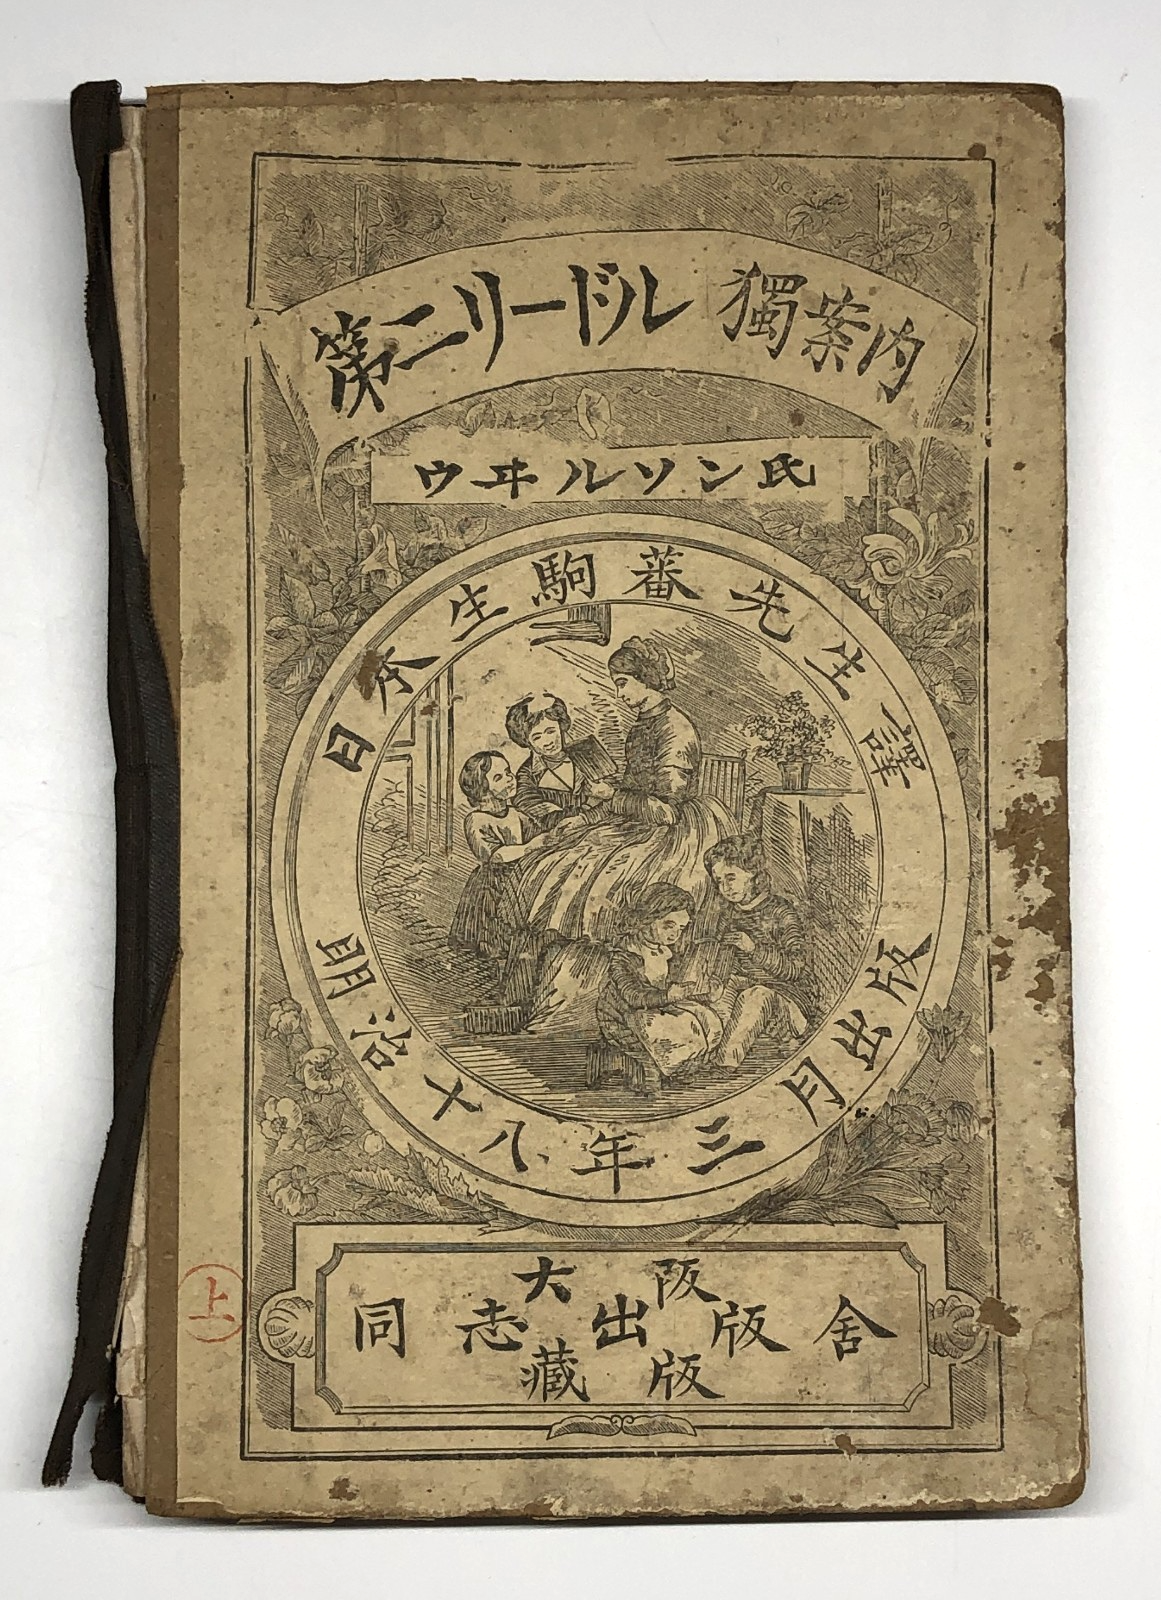 第二リードル獨案内
ウヰルソン氏
日本生駒蕃先生譯
明治十八年三月出版
大阪
同志出版舍
藏版
上